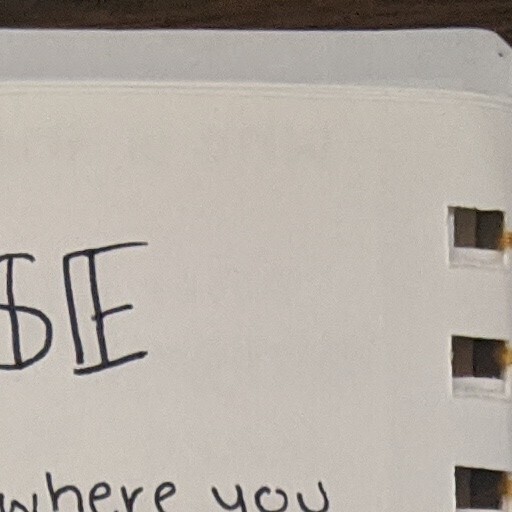 E
where you